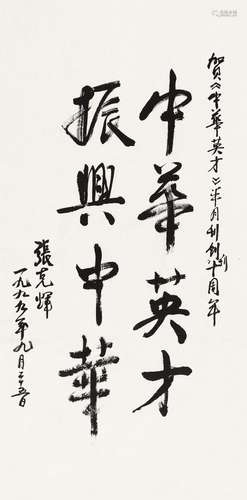 贺《中華英才》半月刊创刊十周年
中華英才
振興中華
張克輝
一九九九年九月二十五日